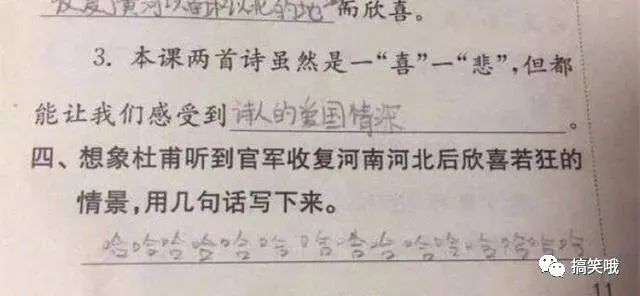 收复了黄河以南和以北的地 而欣喜。
3. 本课两首诗虽然是一“喜”一“悲”,但都
能让我们感受到诗人的爱国情深。
四、想象杜甫听到官军收复河南河北后欣喜若狂的
情景,用几句话写下来。
哈哈哈哈哈哈哈哈哈哈哈哈哈哈哈哈
搞笑哦
11